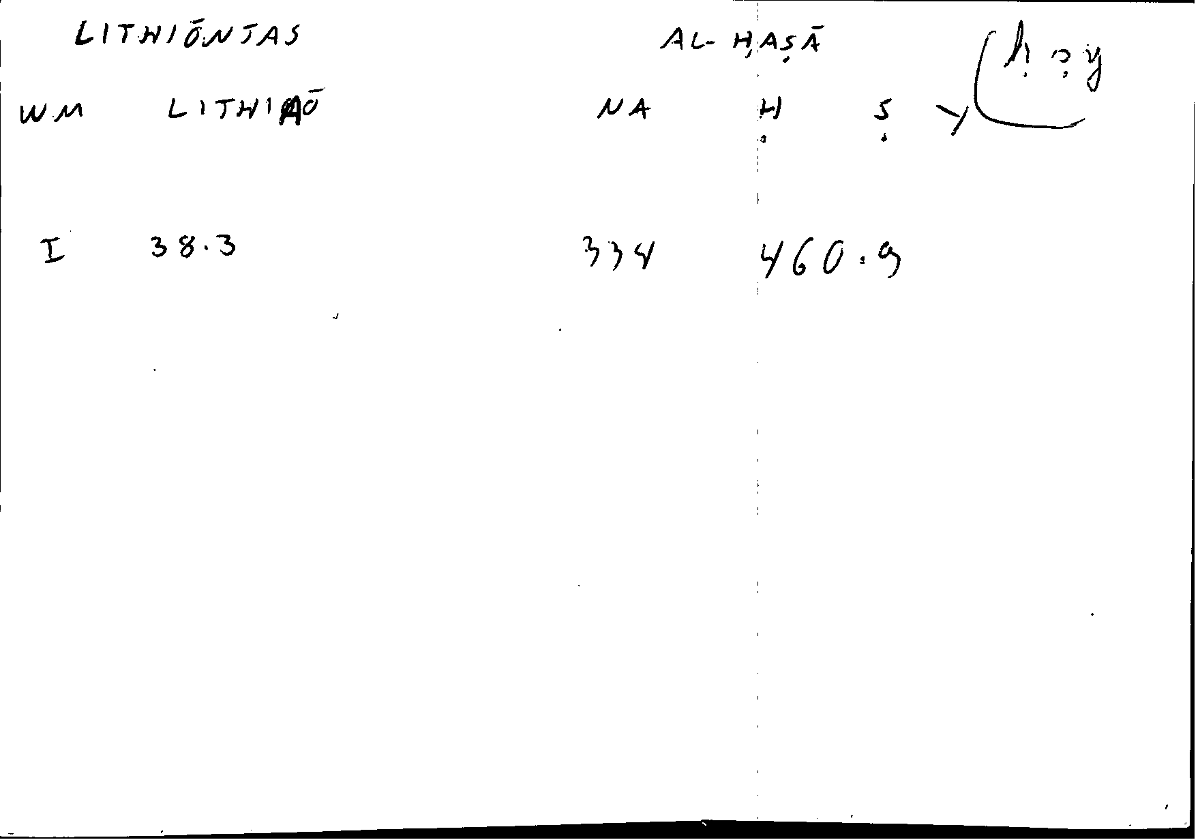 LITHIŌNTAS AL-ḤAṢĀ
WM LITHIAŌ NA Ḥ Ṣ Y ḥ ṣ y
I 38.3 334 460.9